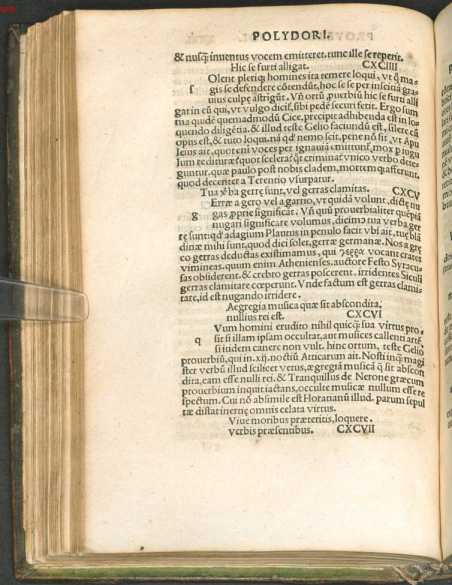 POLYDORI.
& nusq̃ inuentus vocem emitteret. tunc ille se reperit.
Hic se furti alligat. CXCIIII
f Olent pleriq; homines ita temere loqui, vt q̃ ma-
gis se defendere cōtendũt, hoc se se per inscitiã gra-
uius culpe astrigũt. Vñ ortũ ꝓuerbiũ hic se furti alli
gat in eũ qui, vt vulgo dicit̃, sibi pedẽ securi fecit. Ergo sum
ma quidẽ quemadmodũ Cice, precipit adhibenda est in lo-
quendo diligẽtia. & illud teste Gelio faciundũ est, silere cũ
opus est, & tuto loqui, nã qd̃ nemo scit, pene nõ fit, vt Apu
leius ait, quoteni voces per ignauiã emittunt̃, mox ꝑ
lum redimuntur
guntur, quæ paulo post nobis cladem, mortem q; afferunt.
quod decenter a Terentio vsurpatur.
Tua v̄ba gerrę sunt, vel gerras clamitas. CXCV
g Erræ a gero vel a garrio, vt quidã volunt, dictę nu
gas ꝓprie significãt. Vñ quũ prouerbialiter quẽpiã
nugari significare volumus, dicim⁹ tua verba ger
rę sunt: qd̃ adagium Plautus in penulo facit vbi ait, tuę blã
dinæ mihi sunt, quod dici solet, gerræ germanæ. Nos a gre
co getras deductas existimamus, qui γέρρα vocant crates
vimineas. quum enim Athenienses, auctore Festo Syracu-
sas obsiderent, & crebro gerras poscerent, irridentes Siculi
gerras clamitare cœperunt. Vnde factum est gerras clami-
tare, id est nugando irridere.
Aegregia musica quæ sit abscondita,
nullius rei est. CXCVI
q Vum homini erudito nihil quicq̃ sua virtus pro-
sit si illam ipsam occultat, aut musices callenti artẽ,
si itidem canere non vult. hinc ortum, teste Gelio
prouerbiũ, qui in .xij. noctiũ Atticarum ait. Nosti inq̃ magi
ster verbũ illud scilicet vetus, ægregiã musicã q̃ sit abscon
dita, eam esse nulli rei. & Tranquillus de Nerone græcum
prouerbium inquit iactans, occulte musicæ nullum esse re
spectum. Cui nõ absimile est Horatianũ illud. parum sepul
tæ distat inertię omnis celata virtus.
Viue moribus præteritis, loquere
verbis præsentibus. CXCVII